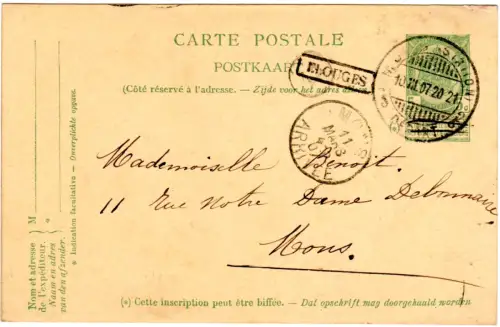 CARTE POSTALE
POSTKAART
ELOUGES
(Côté réservé à l'adresse. — Zijde voor het adres
MONS (STATION)
10.III.07.20-21
MONS
11
MARS
ARRIVEE
Mademoiselle Benoit.
11 Rue Notre Dame Debonnaire
Mons.
(*) Cette inscription peut être biffée. — Dat opschrift mag doorgehaald worden
Nom et adresse
de l'expéditeur.
Naam en adres
van den afzender.
M
*
* Indication facultative — Onverplichte opgave.